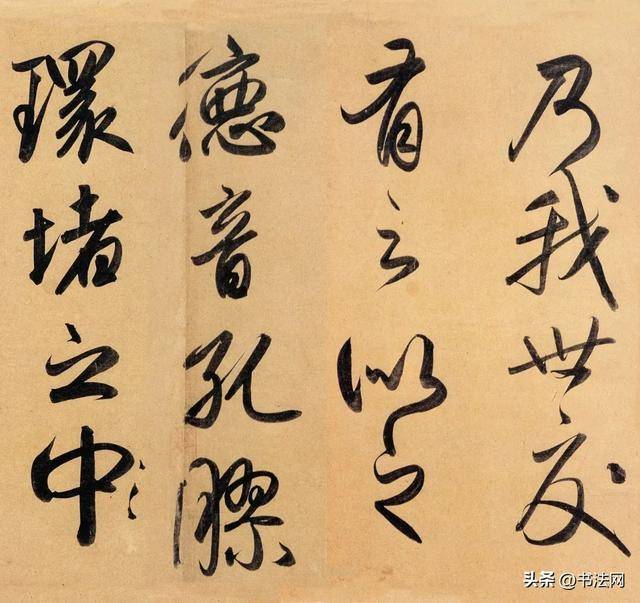 乃我世友
有之似之
德音孔膠
環堵之中〻
头条 @书法网